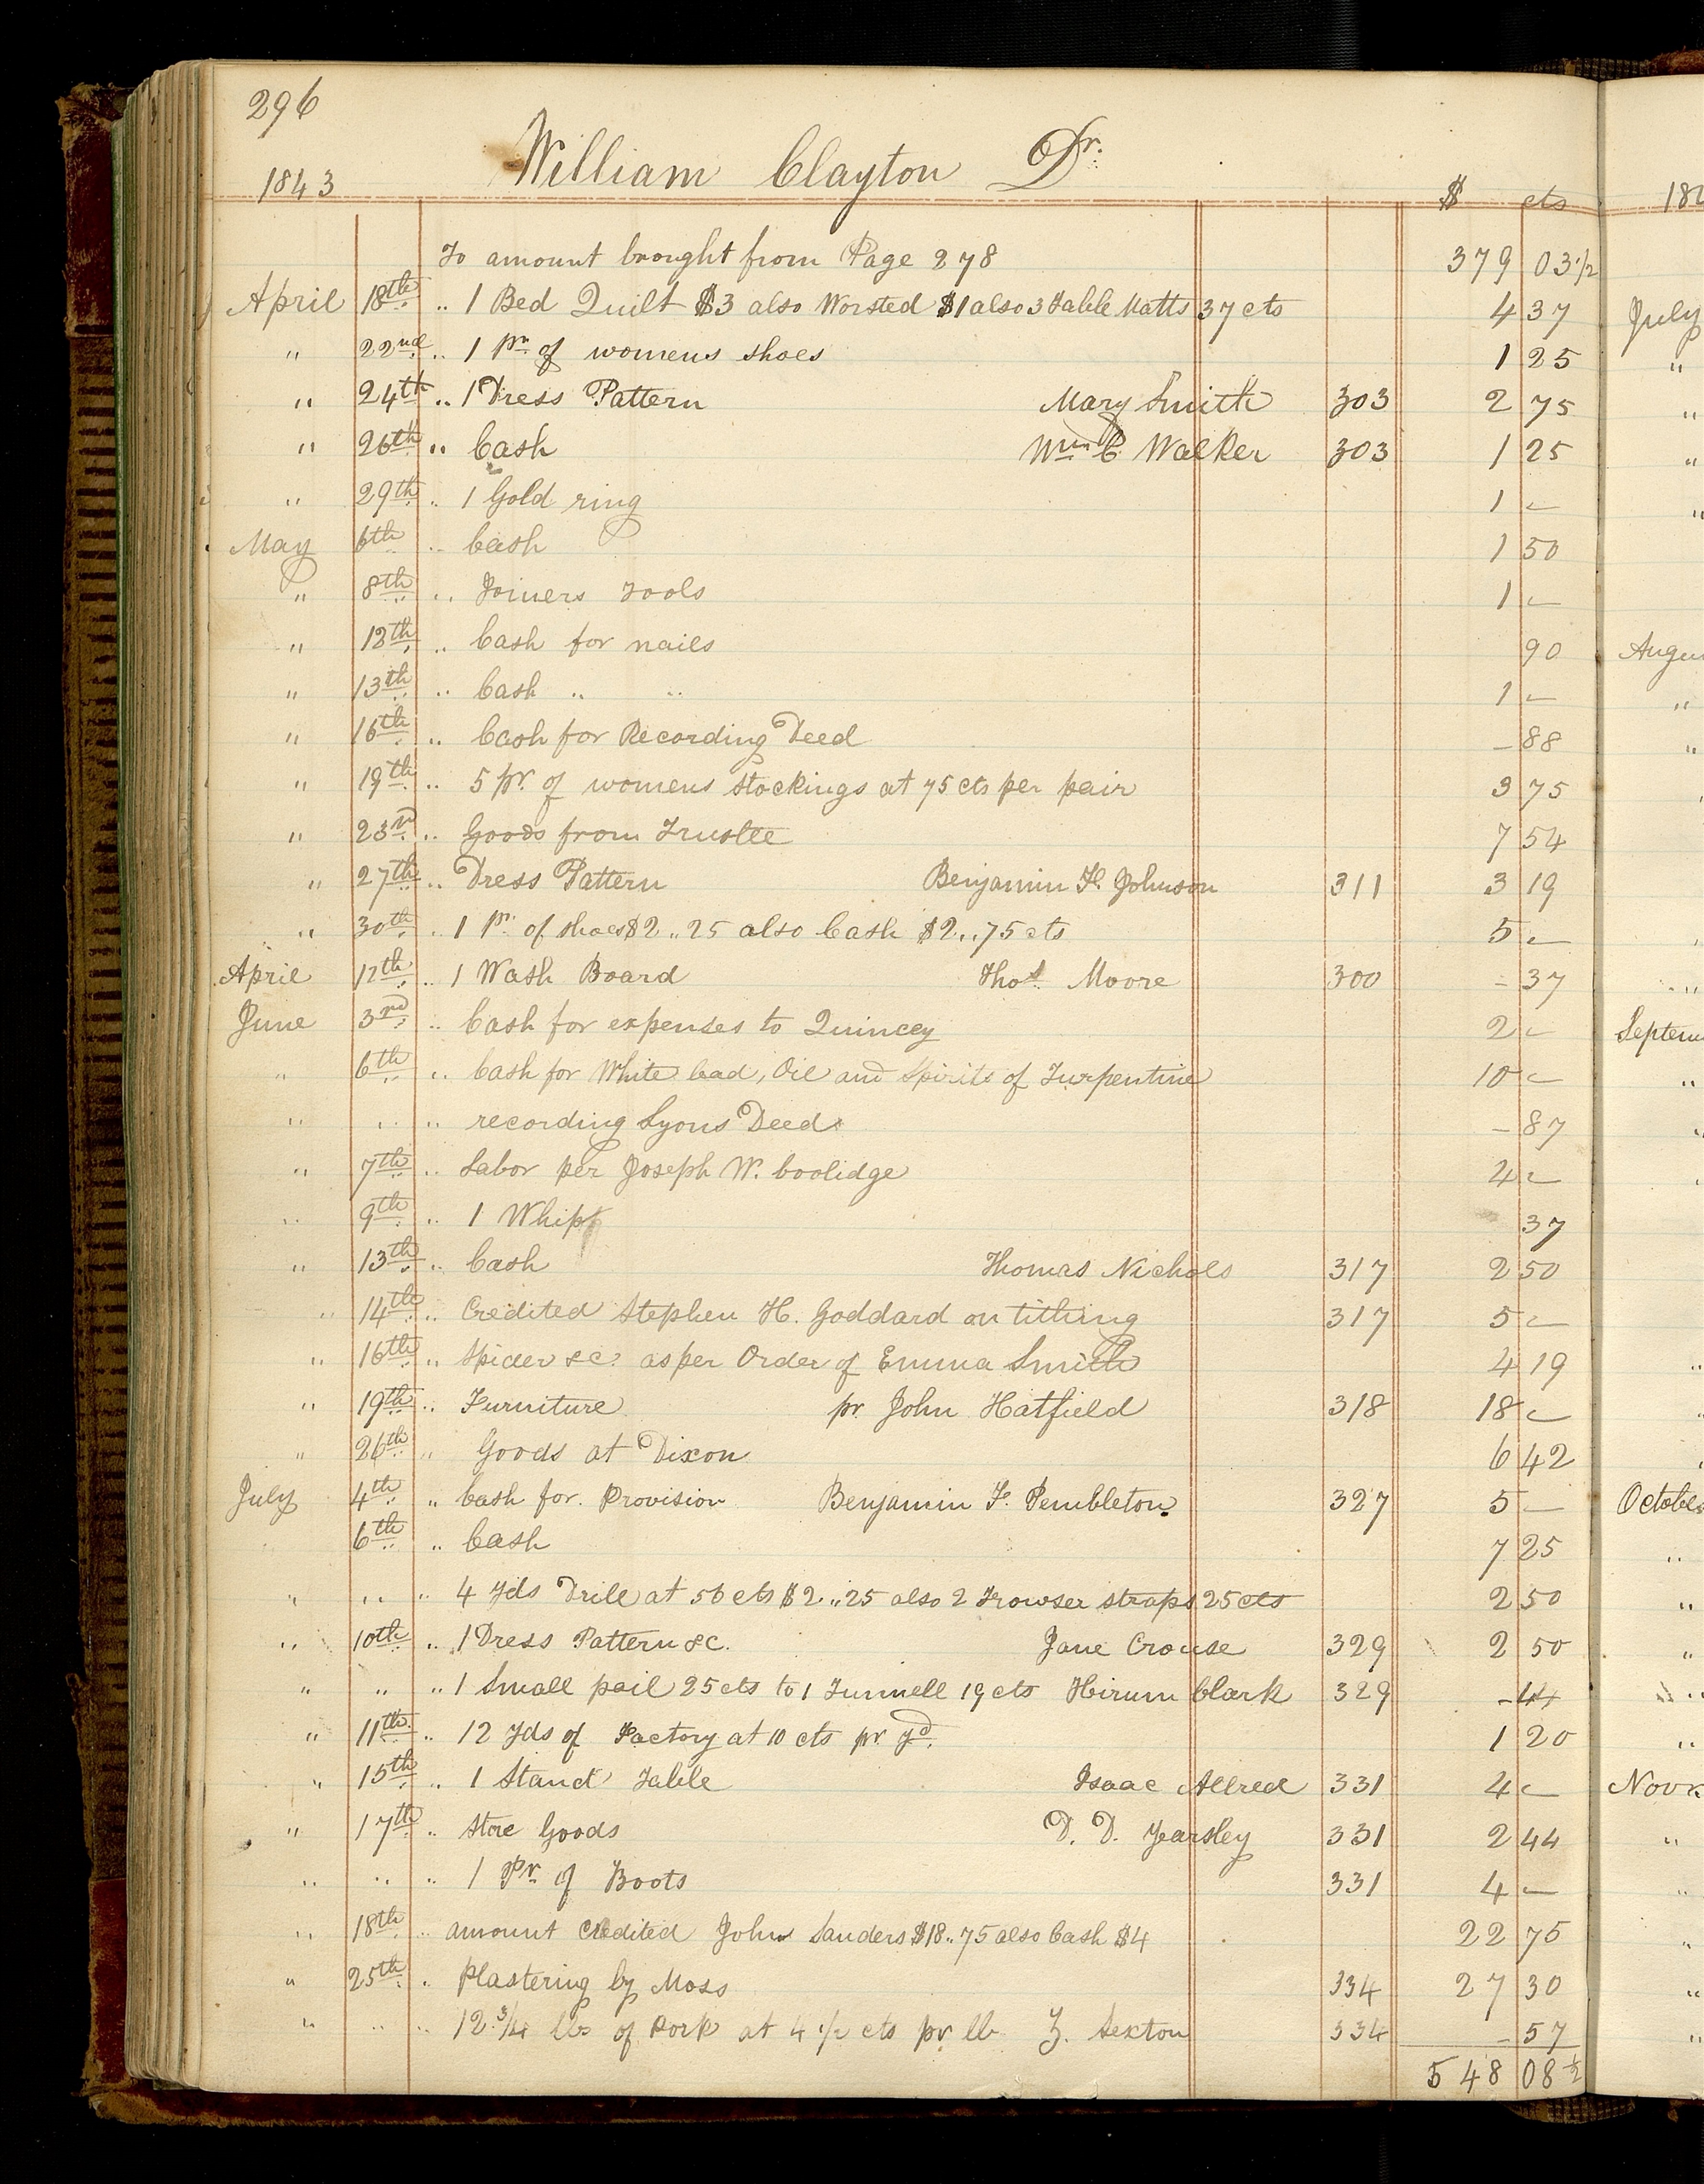 296
1843 William Clayton Dr. $ cts 184
To amount brought from Page 278 379 03½
April 18th .. 1 Bed Quilt $3 also Worsted $1 also 3 Table Matts 37 cts 4 37 July
" 22nd .. 1 pr. of womens shoes 1 25 "
" 24th .. 1 Dress Pattern Mary Smith 303 2 75 "
" 26th .. Cash Wm. C. Walker 303 1 25 "
" 29th .. 1 Gold ring 1 – "
May 6th .. Cash 1 50
" 8th .. Joiners Tools 1 –
" 12th .. Cash for nails 90 Augu
" 13th .. Cash .. .. 1 – "
" 16th .. Cash for Recording Deed – 88 "
" 19th .. 5 pr. of womens stockings at 75 cts per pair 3 75
" 23rd .. Goods from Trustee 7 54
" 27th .. Dress Pattern Benjamin F. Johnson 311 3 19
" 30th .. 1 Pr. of shoes $2..25 also Cash $2..75 cts 5 –
April 12th .. 1 Wash Board Thos. Moore 300 – 37 "
June 3rd .. Cash for expenses to Quincey 2 – Septem
" 6th .. Cash for White lead, Oil and Spirits of Turpentine 10 – "
" .. .. recording Lyons Deed – 87 "
" 7th .. Labor per Joseph W. Coolidge 4 –
" 9th .. 1 Whip 37
" 13th .. Cash Thomas Nichols 317 2 50
" 14th .. Credited Stephen H. Goddard on tithing 317 5 –
" 16th .. Spider &c. as per Order of Emma Smith 4 19 "
" 19th .. Furniture pr John Hatfield 318 18 –
" 26th .. Goods at Dixon 6 42
July 4th .. Cash for. Provision Benjamin F. Pembleton. 327 5 – October
6th .. Cash 7 25 "
" .. .. 4 Yds Drill at 56 cts $2..25 also 2 Trowser straps 25 cts 2 50 "
" 10th .. 1 Dress Pattern &c. Jane Crouse 329 2 50 "
" " .. 1 Small pail 25 cts to 1 Tunnell 19 cts Hirum Clark 329 – 44 "
" 11th .. 12 Yds of Factory at 10 cts pr yd. 1 20 "
" 15th .. 1 Stand Table Isaac Allred 331 4 – Novr.
" 17th .. Store Goods D. D. Yearsley 331 2 44 "
" .. .. 1 Pr. of Boots 331 4 – "
" 18th .. amount credited John Sanders $18..75 also Cash $4 22 75 "
" 25th .. Plastering by Moss 334 27 30 "
" .. .. 12.¾ lbs of Pork at 4 ½ cts pr lb Z. Sexton 334 – 57 "
548 08½